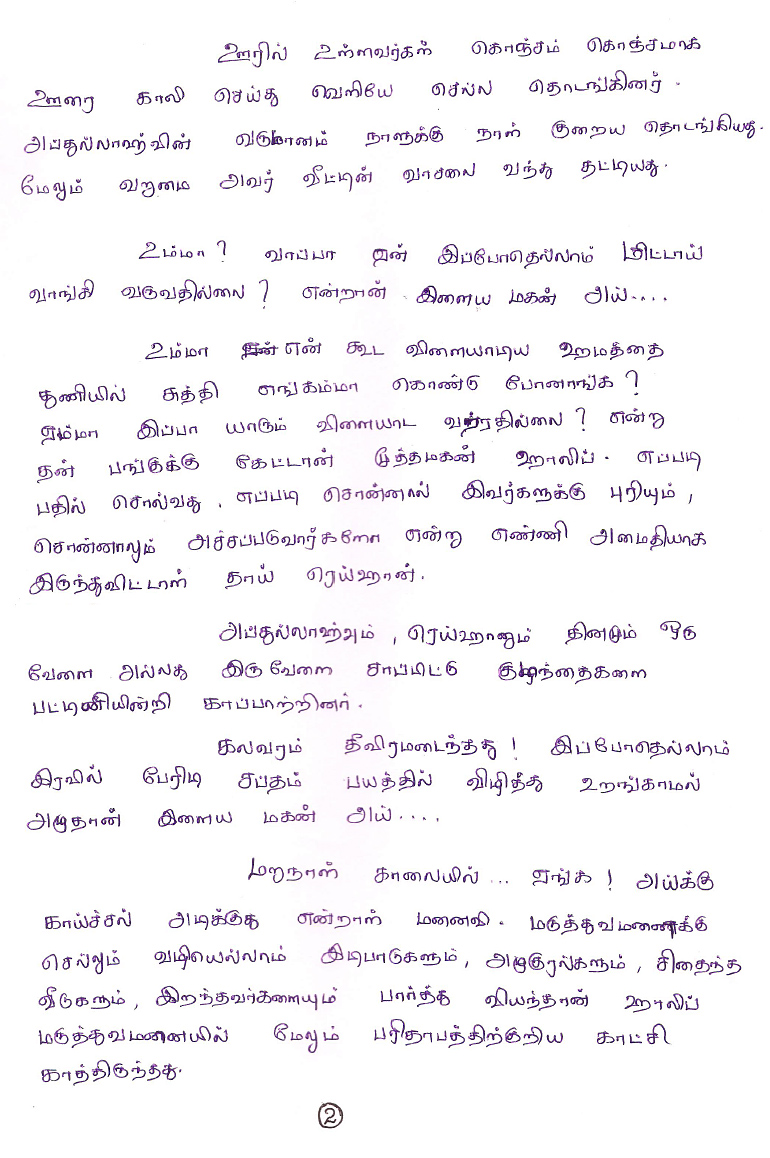 ஊரில் உள்ளவர்கள் கொஞ்சம் கொஞ்சமாக
ஊரை காலி செய்து வெளியே செல்ல தொடங்கினர்.
அப்துல்லாஹ்வின் வருமானம் நாளுக்கு நாள் குறைய தொடங்கியது.
மேலும் வறுமை அவர் வீட்டின் வாசலை வந்து தட்டியது.
உம்மா? வாப்பா ஏன் இப்போதெல்லாம் மிட்டாய்
வாங்கி வருவதில்லை? என்றான் இளைய மகன் அய்....
உம்மா என் கூட விளையாடிய ஹமத்தை
துணியில் சுத்தி எங்கம்மா கொண்டு போனாங்க?
ஏம்மா இப்பா யாரும் விளையாட வற்ரதில்லை? என்று
தன் பங்குக்கு கேட்டான் மூத்தமகன் ஹாலிப். எப்படி
பதில் சொல்வது. எப்படி சொன்னால் இவர்களுக்கு புரியும்,
சொன்னாலும் அச்சப்படுவார்களோ என்று எண்ணி அமைதியாக
இருந்துவிட்டாள் தாய் ரெய்ஹான்.
அப்துல்லாஹ்வும், ரெய்ஹானும் தினமும் ஒரு
வேளை அல்லது இரு வேளை சாப்பிட்டு குழந்தைகளை
பட்டினியின்றி காப்பாற்றினர்.
கலவரம் தீவிரமடைந்தது! இப்போதெல்லாம்
இரவில் பேரிடி சப்தம் பயத்தில் விழித்து உறங்காமல்
அழுதான் இளைய மகன் அய்....
மறுநாள் காலையில்... ஏங்க! அய்க்கு
காய்ச்சல் அடிக்குது என்றாள் மனைவி. மருத்துவமனைக்கு
செல்லும் வழியெல்லாம் இடிபாடுகளும், அழுகுரல்களும், சிதைந்த
வீடுகளும், இறந்தவர்களையும் பார்த்து வியந்தான் ஹாலிப்
மருத்துவமனையில் மேலும் பரிதாபத்திற்குறிய காட்சி
காத்திருந்தது.
2